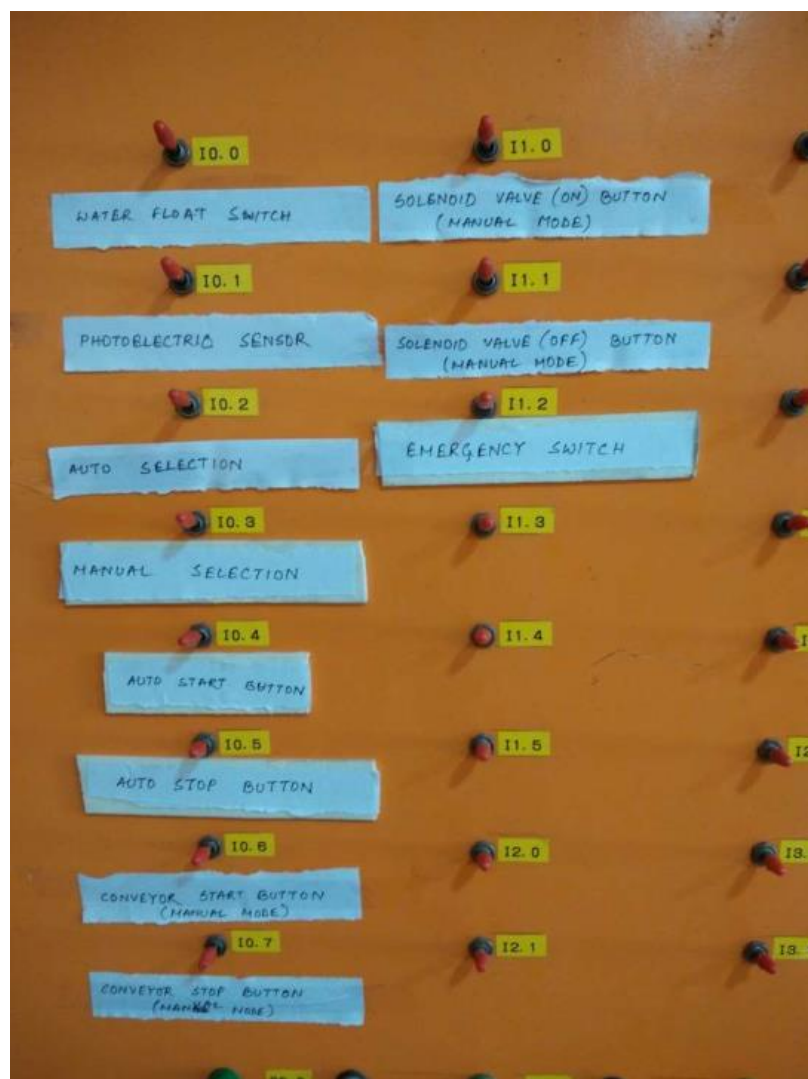 I0.0
WATER FLOAT SWITCH
I0.1
PHOTOELECTRIC SENSOR
I0.2
AUTO SELECTION
I0.3
MANUAL SELECTION
I0.4
AUTO START BUTTON
I0.5
AUTO STOP BUTTON
I0.6
CONVEYOR START BUTTON
(MANUAL MODE)
I0.7
CONVEYOR STOP BUTTON
(MANUAL MODE)
I1.0
SOLENOID VALVE (ON) BUTTON
(MANUAL MODE)
I1.1
SOLENOID VALVE (OFF) BUTTON
(MANUAL MODE)
I1.2
EMERGENCY SWITCH
I1.3
I1.4
I1.5
I2.0
I2.1